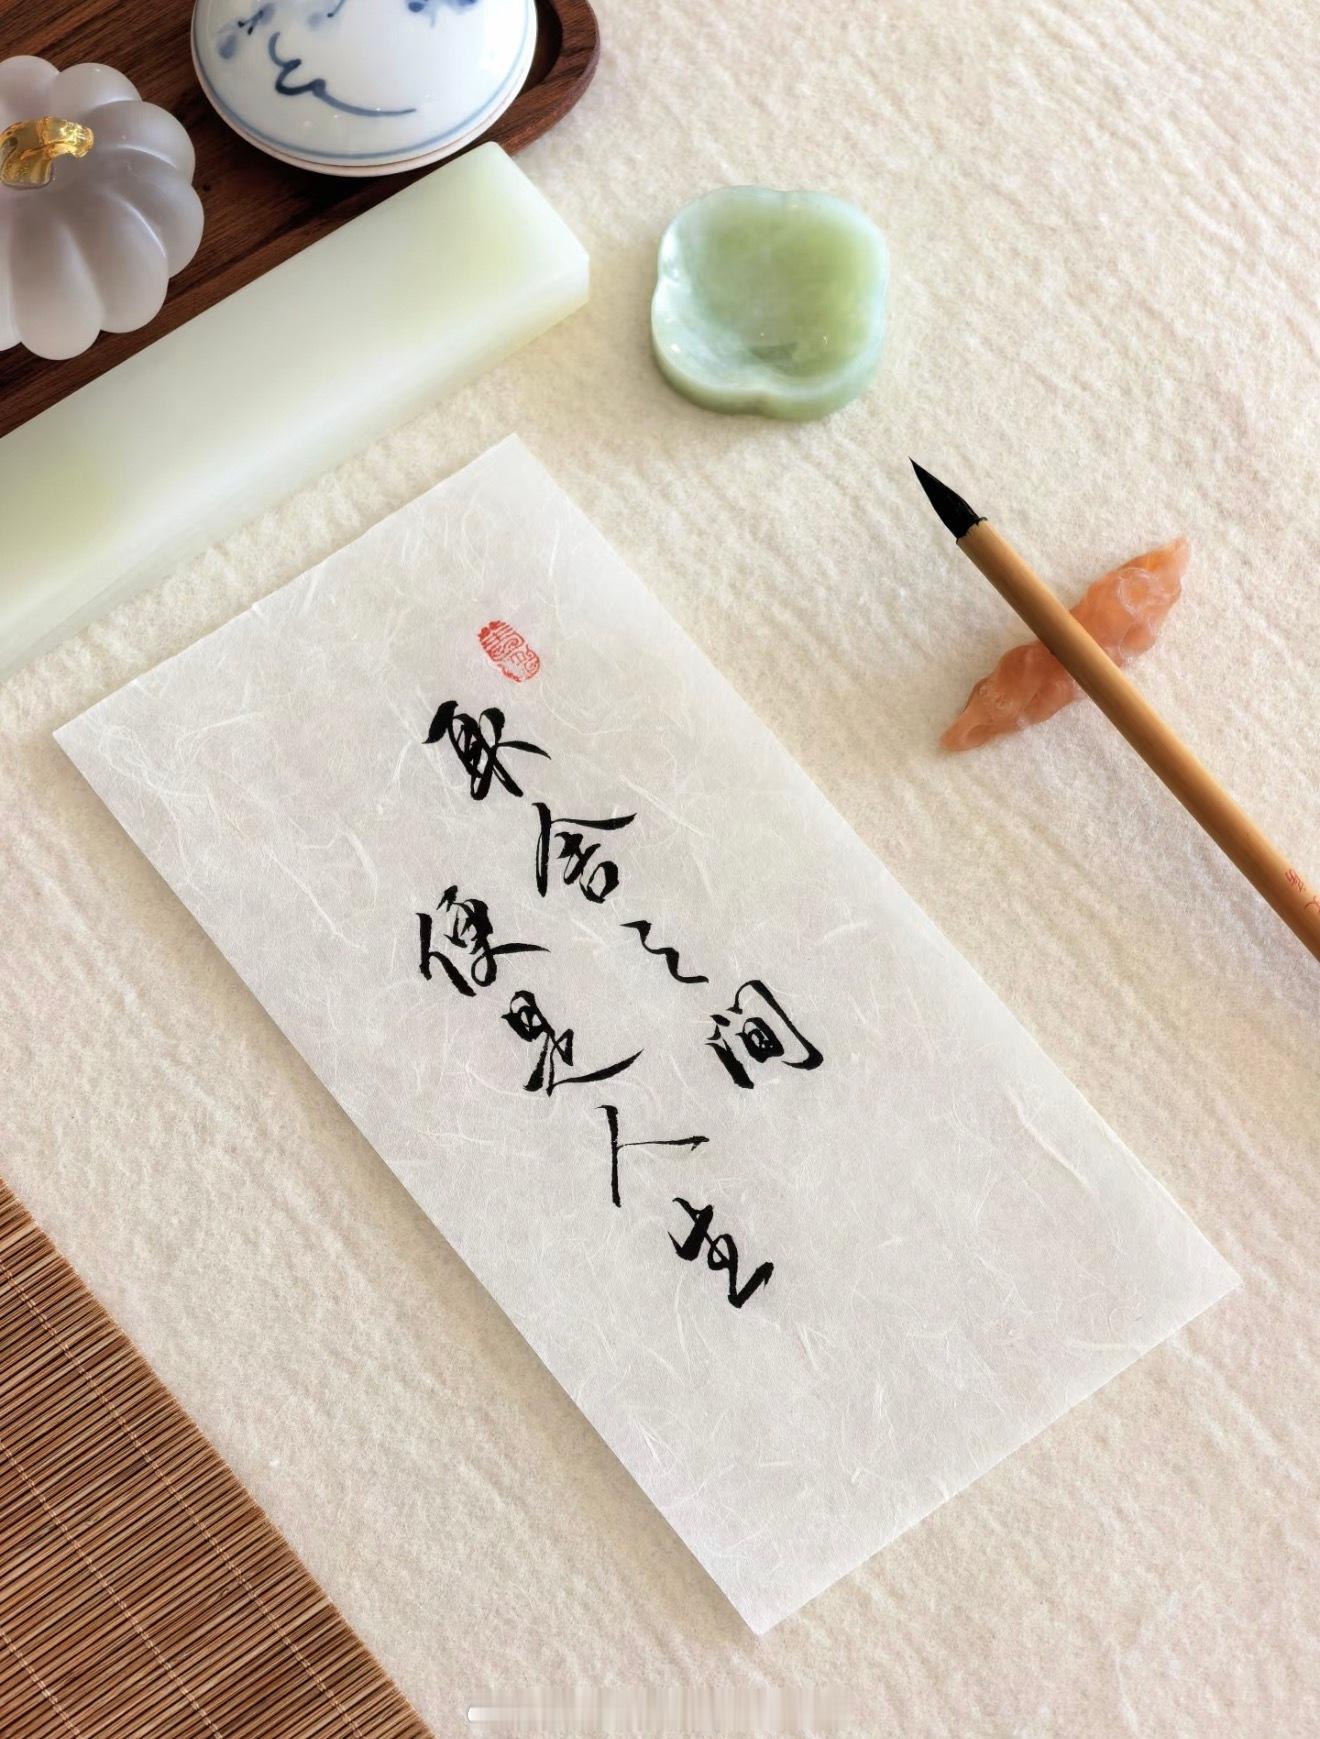 取舍之间
便是人生